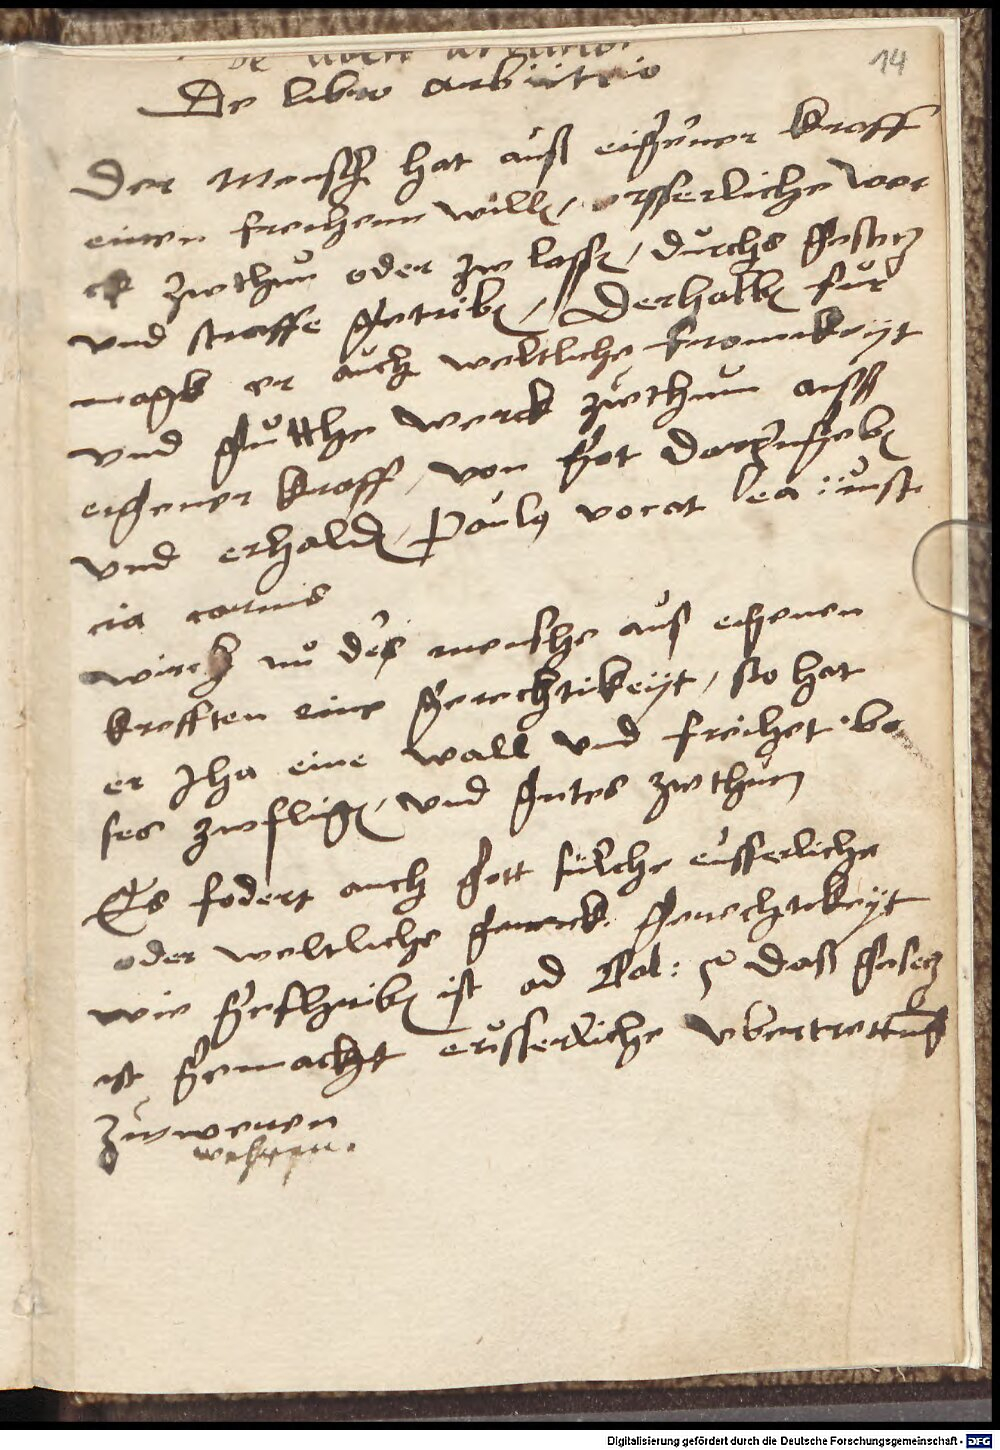 14
De libero arbitrio
De libro arbiitrio
Der Mensch hat auß eigener krafft
einen freihenn willen / eusserliche wer
ck zwthun oder zw lassen / durchs gesetz
vnd straffe getriben / Derhalben fur
magk er auch weltliche fromickeyt
vnd gutthe werck zwthun auss
eigener krafft, von Got darzugeben
vnd erhalden / Paulus vocat ea: iust
cia carnis
wirckt nu der mensche aus eigenen
krefften eine gerechtikeijt / so hat
er Jha eine wall vnd freihet bo
ses zwfligen, vnd gutes zwthun
Es fodert auch gott sulche eusserliche
oder weltliche gerechtikeyt
wie geschriben ist ad Gal: 3 daß gesetz
ist gemacht eusserliche vbertrettung
zuweren
wehren.
Digitalisierung gefördert durch die Deutsche Forschungsgemeinschaft - DFG